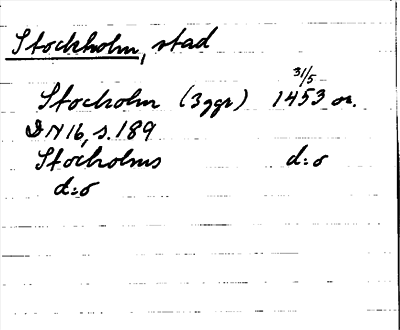 Stockholm, stad
31/5
Stocholm (3 ggr) 1453 or.
DN 16, s. 189
Stocholms d:o
d:o